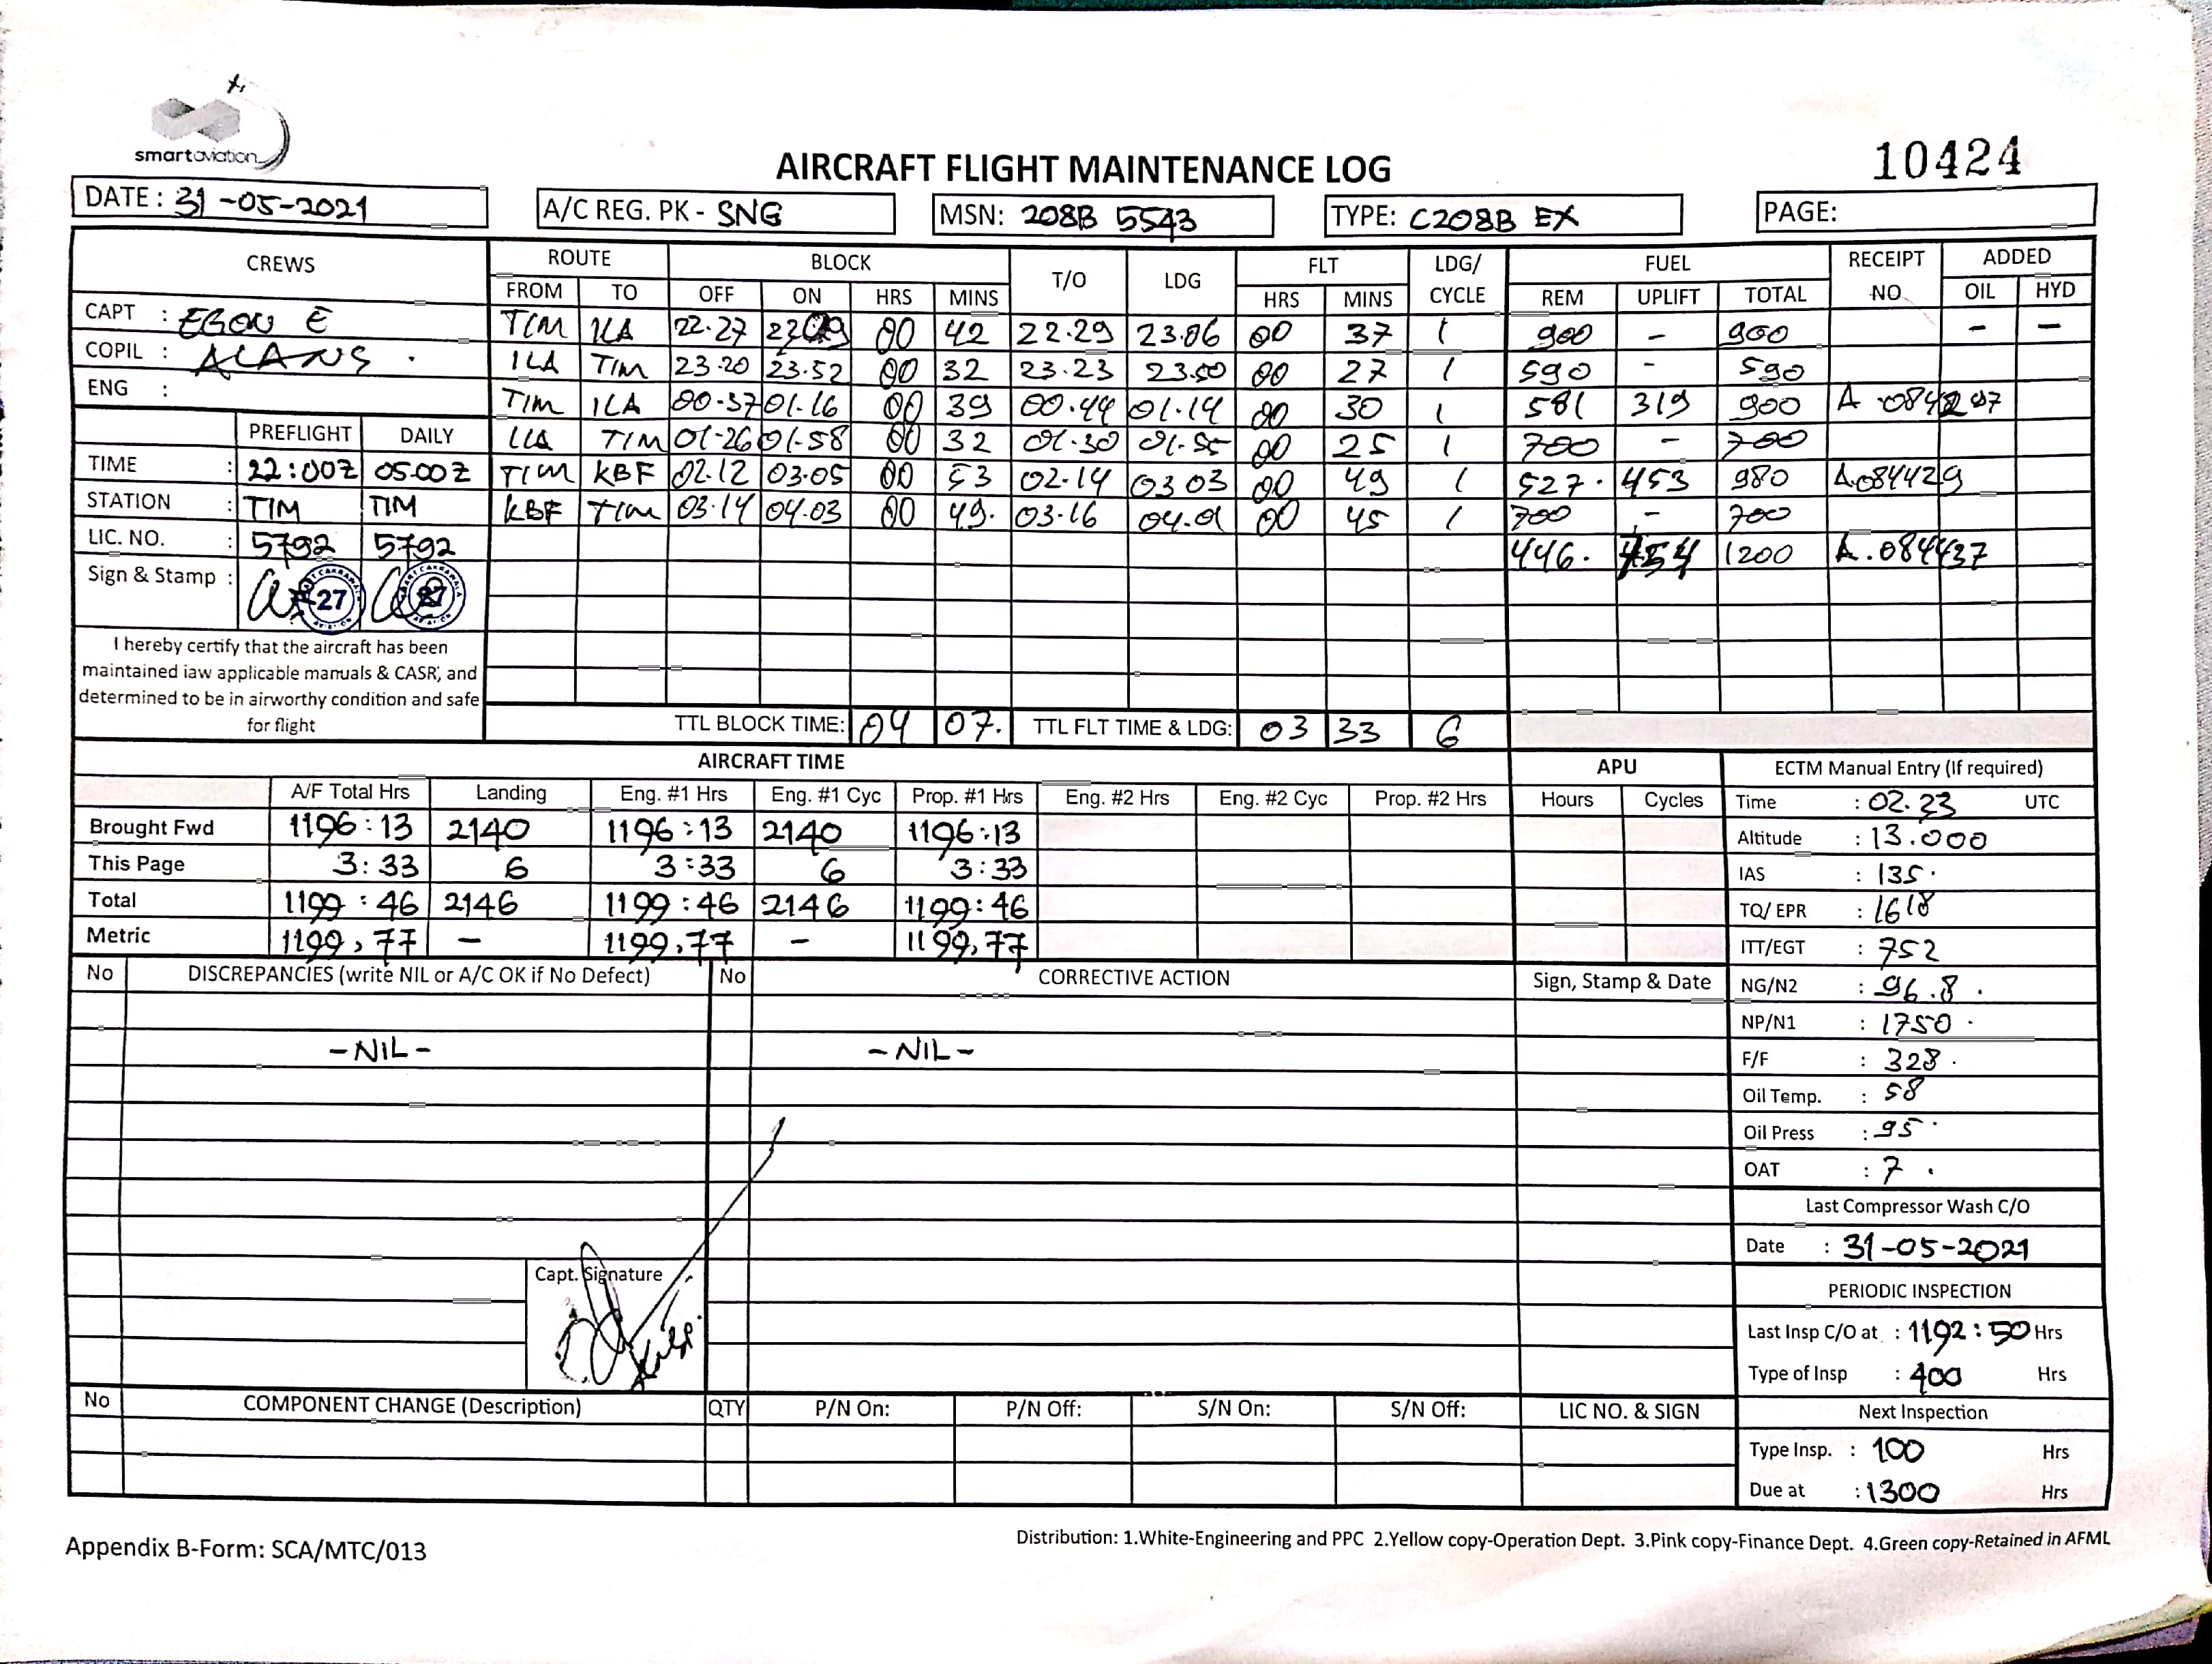 smartaviation
AIRCRAFT FLIGHT MAINTENANCE LOG
10424
DATE : 31-05-2021 A/C REG. PK - SNG MSN: 208B 5543 TYPE: C208B EX PAGE:
CREWS ROUTE BLOCK T/O LDG FLT LDG/ CYCLE FUEL RECEIPT NO ADDED
FROM TO OFF ON HRS MINS HRS MINS REM UPLIFT TOTAL OIL HYD
CAPT : EGON E
COPIL : ALANS .
ENG :
TIM ILA 22.27 00 42 22.29 23.06 00 37 1 900 - 900 - -
ILA TIM 23.20 23.52 00 32 23.23 23.50 00 27 1 590 - 590
TIM ILA 00.37 01.16 00 39 00.44 01.14 00 30 1 581 319 900
ILA TIM 01-26 01-58 00 32 01.30 01.55 00 25 1 700 - 700
TIM KBF 02.12 03.05 00 53 02.14 03 03 00 49 1 527. 453 980 A.084429
KBF TIM 03.14 04.03 00 49. 03.16 04.01 00 45 1 700 - 700
446. 754 1200 A.084437
PREFLIGHT DAILY
TIME : 22:00Z 05.00Z
STATION : TIM TIM
LIC. NO. : 5792 5792
Sign & Stamp : 27 27
I hereby certify that the aircraft has been
maintained iaw applicable manuals & CASR, and
determined to be in airworthy condition and safe
for flight
TTL BLOCK TIME: 04 07. TTL FLT TIME & LDG: 03 33 6
AIRCRAFT TIME APU
A/F Total Hrs Landing Eng. #1 Hrs Eng. #1 Cyc Prop. #1 Hrs Eng. #2 Hrs Eng. #2 Cyc Prop. #2 Hrs Hours Cycles
Brought Fwd 1196:13 2140 1196:13 2140 1196:13
This Page 3:33 6 3:33 6 3:33
Total 1199:46 2146 1199:46 2146 1199:46
Metric 1199,77 - 1199,77 - 1199,77
ECTM Manual Entry (If required)
Time : 02.23 UTC
Altitude : 13.000
IAS : 135.
TQ/ EPR : 1618
ITT/EGT : 752
NG/N2 : 96.8 .
NP/N1 : 1750 .
F/F : 328 .
Oil Temp. : 58
Oil Press : 95 .
OAT : 7 .
Last Compressor Wash C/O
Date : 31-05-2021
PERIODIC INSPECTION
Last Insp C/O at : 1192:50 Hrs
Type of Insp : 400 Hrs
Next Inspection
Type Insp. : 100 Hrs
Due at : 1300 Hrs
No DISCREPANCIES (write NIL or A/C OK if No Defect) No CORRECTIVE ACTION Sign, Stamp & Date
-NIL- -NIL-
Capt. Signature
No COMPONENT CHANGE (Description) QTY P/N On: P/N Off: S/N On: S/N Off: LIC NO. & SIGN
Appendix B-Form: SCA/MTC/013
Distribution: 1.White-Engineering and PPC 2.Yellow copy-Operation Dept. 3.Pink copy-Finance Dept. 4.Green copy-Retained in AFML